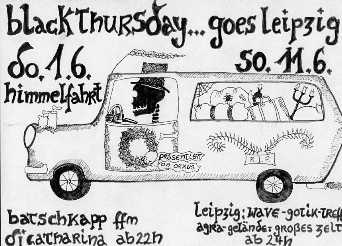 black thursday... goes Leipzig
do. 1.6.
himmelfahrt
so. 11.6.
präsentiert
von
batschkapp ffm
dj catharina ab 22h
Leipzig: wave-gotik-treff
agra-gelände: großes zelt
ab 24h